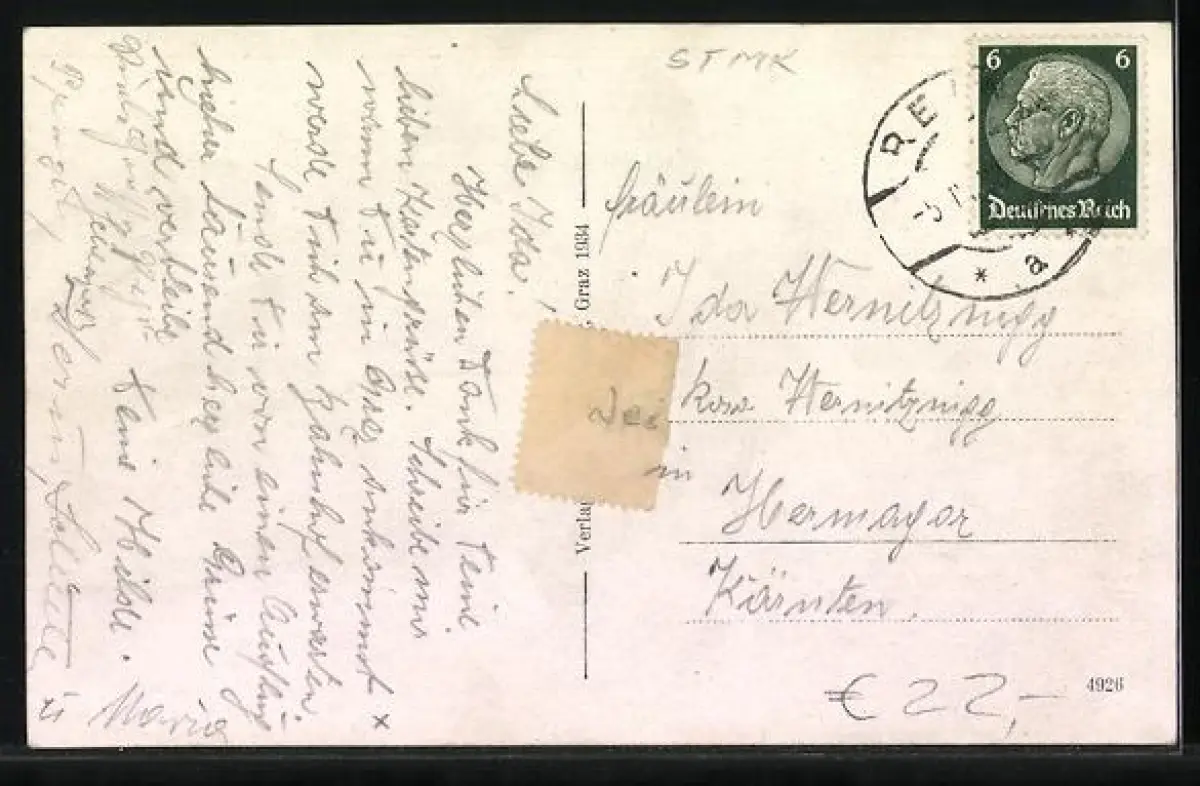 STMK
6 6
Deutsches Reich
RE
* a
Fräulein
Ida Wernitznigg
bei
Wernitznigg
in
Hermagor
Kärnten.
€ 22,-
4926
Verlag
, Graz 1934
Liebe Ida!
Herzlichen Dank für Deine
lieben Kartengrüsse. Schreibe mir
wann Du in Graz ankommst x
werde Dich am Bahnhof erwarten.
Sende Dir von einem Ausflug
hieher tausend herzliche Grüsse
und verbleibe
Deine Hilde.
Maria